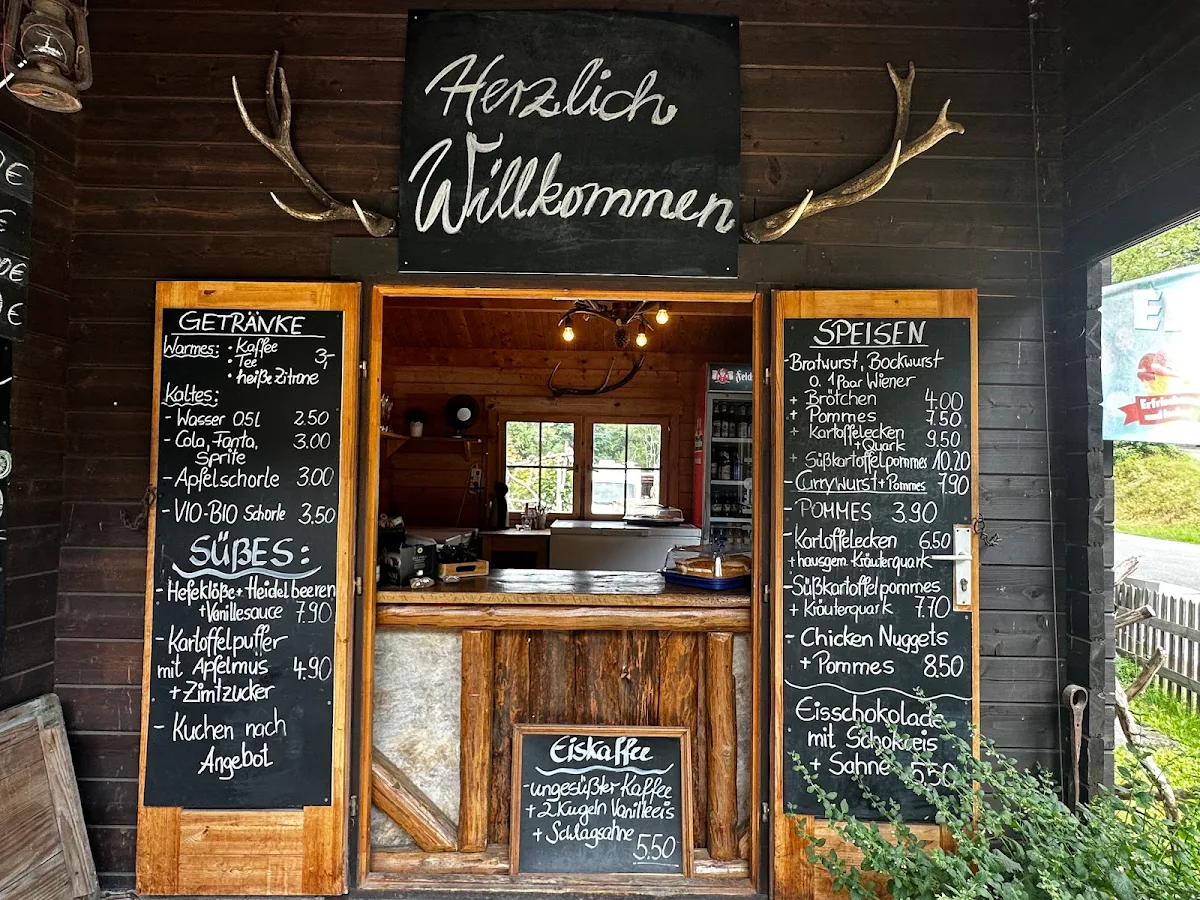 Herzlich
Willkommen
GETRÄNKE
Warmes: • Kaffee
• Tee 3,-
• heiße Zitrone
Kaltes:
- Wasser 0,5l 2.50
- Cola, Fanta, 3.00
Sprite
- Apfelschorle 3.00
- VIO-BIO Schorle 3,50
SÜßES:
- Hefeklöße + Heidelbeeren
+ Vanillesauce 7.90
- Kartoffelpuffer
mit Apfelmus 4.90
+ Zimtzucker
- Kuchen nach
Angebot
Eiskaffee
- ungesüßter Kaffee
+ 2 Kugeln Vanilleeis
+ Schlagsahne
5.50
SPEISEN
- Bratwurst, Bockwurst
o. 1 Paar Wiener
+ Brötchen 4.00
+ Pommes 7.50
+ Kartoffelecken 9.50
+ Quark
+ Süßkartoffelpommes 10.20
- Currywurst + Pommes 7.90
- POMMES 3.90
- Kartoffelecken 6.50
+ hausgem. Kräuterquark
- Süßkartoffelpommes
+ Kräuterquark 7.70
- Chicken Nuggets
+ Pommes 8.50
Eisschokolade
mit Schokoeis
+ Sahne 5.50